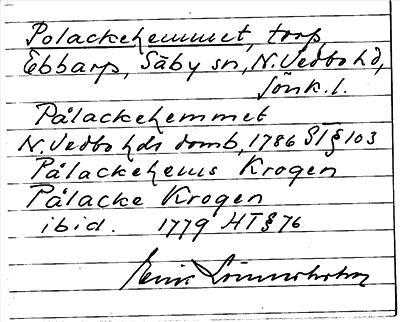 Polackehemmet, torp,
Ebbarp, Säby sn, N. Vedbo hd,
Jönk. l.
Pålackehemmet
N. Vedbo hds domb, 1786 ST § 103
Pålackehems Krogen
Pålacke Krogen
ibid. 1779 HT § 76